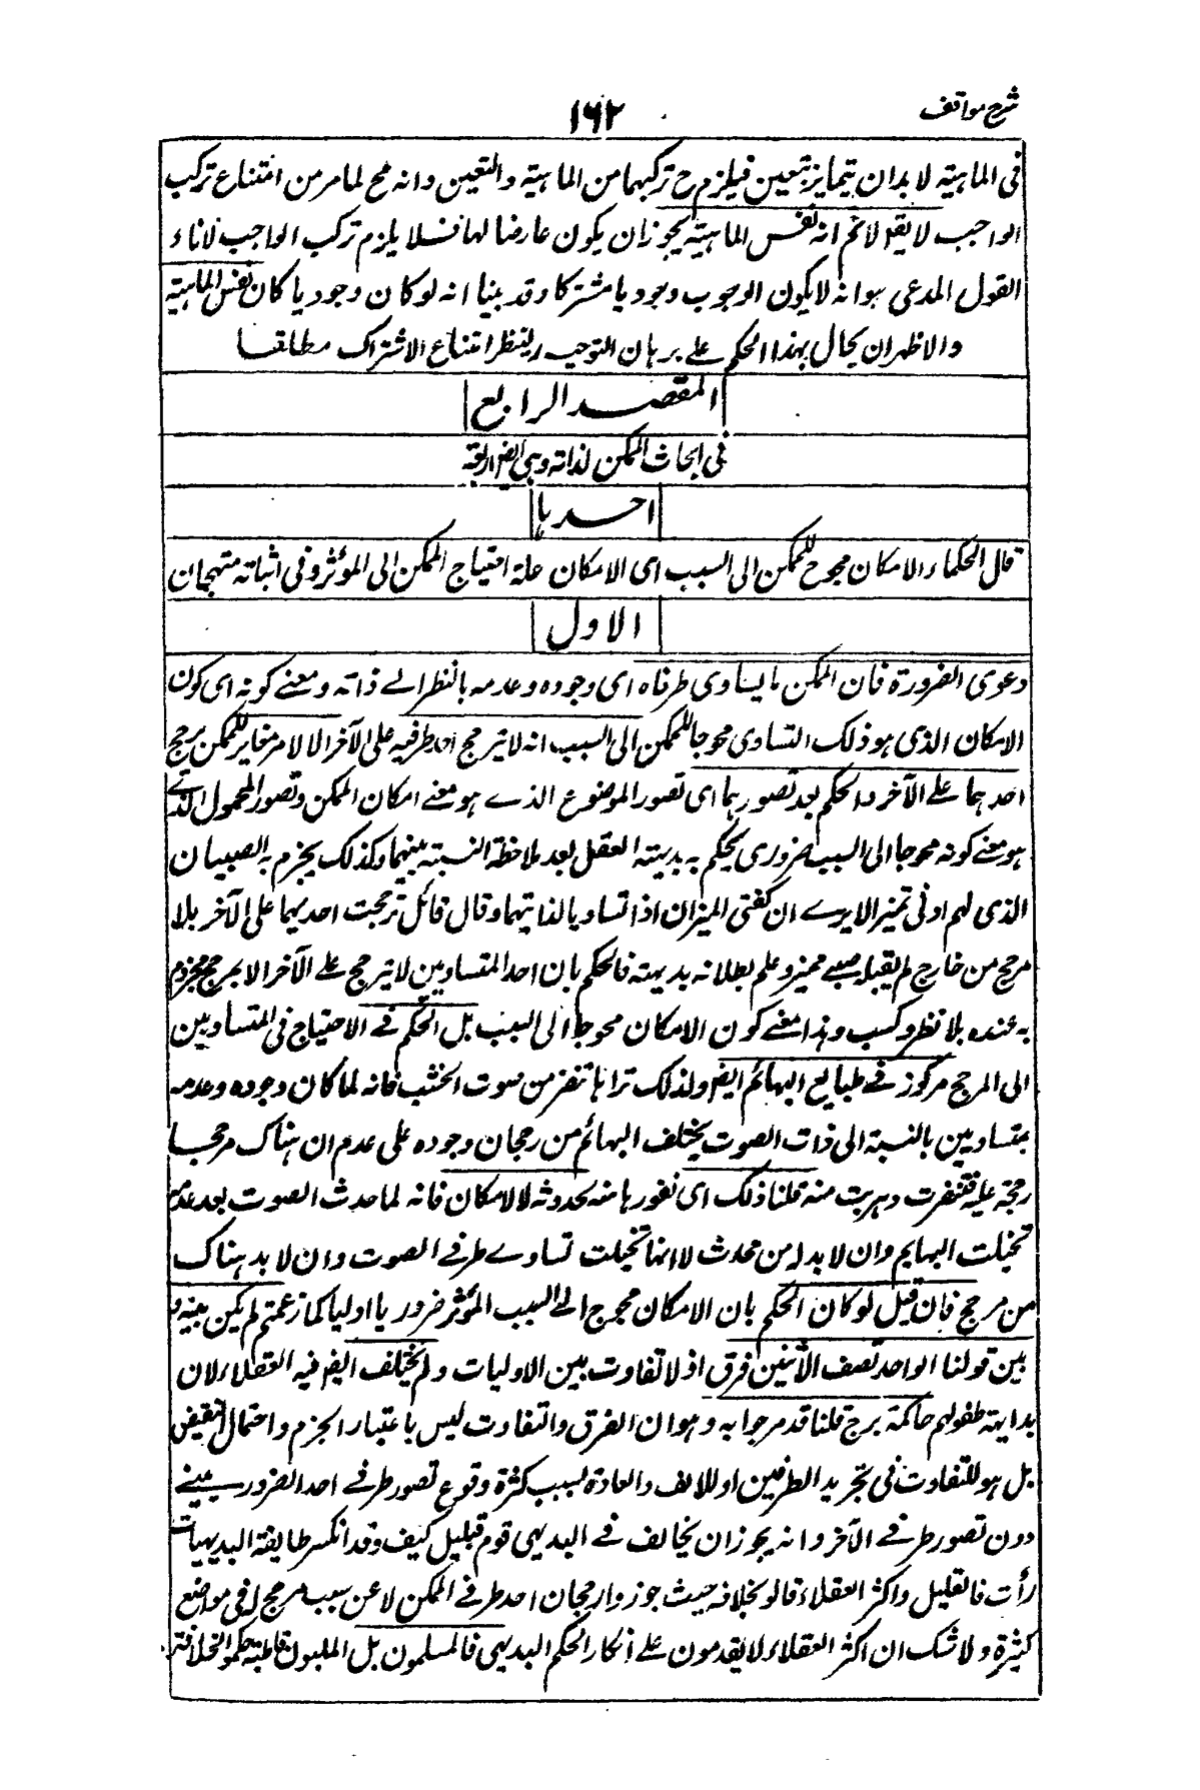 شرح مواقف
١٦٢
فى الماهية لا بد ان يتمايز بتعين فيلزم ح تركبهما من الماهية والتعين وانه مح لما مر من امتناع تركب
الواجب لا يقم لا نم انه نفس الماهية يجوز ان يكون عارضا لها فلا يلزم تركب الواجب لانا ء
القول المدعى هو انه لا يكون الوجوب وجوديا مشتركا وقد بينا انه لو كان وجوديا كان نفس الماهية
والاظهر ان يحال بهذا الحكم على برهان التوحيد لينظر امتناع الاشتراك مطلقا
المقصد الرابع
فى ابحاث الممكن لذاته وهى ايضا اربعة
احدها
قال الحكماء الامكان محوج للممكن الى السبب اى الامكان علة احتياج الممكن الى المؤثر وفى اثباته منهجان
الاول
دعوى الضرورة فان الممكن ما يساوى طرفاه اى وجوده وعدمه بالنظر الى ذاته ومعنى كونه اى كون
الامكان الذى هو ذلك التساوى محوجا للممكن الى السبب انه لا يترجح احد طرفيه على الآخر الا لامر مغاير للممكن يرجح
احدهما على الآخر والحكم بعد تصورهما اى تصور الموضوع الذى هو معنى امكان الممكن وتصور المحمول الذى
هو معنى كونه محوجا الى السبب ضرورى يحكم به بديهة العقل بعد ملاحظة النسبة بينهما وكذلك يجزم به الصبيان
الذى لهم ادنى تميز الا يرى ان كفتى الميزان اذا تساويا لذاتيهما وقال قائل ترجحت احديهما على الآخر بلا
مرجح من خارج لم يقبله صبى مميز وعلم بطلانه بديهة فالحكم بان احد المتساويين لا يترجح على الآخر الا بمرجح مجزوم
به عنده بلا نظر وكسب وهذا معنى كون الامكان محوجا الى السبب بل الحكم فى الاحتياج فى المتساويين
الى المرجح مركوز فى طبايع البهائم ايضا ولذلك تراها تنفر من صوت الخشب فانه لما كان وجوده وعدمه
متساويين بالنسبة الى ذات الصوت يختلف البهائم من رجحان وجوده على عدم ان هناك مرجحا
رجحه عليه فتنفرت وهربت منه قلنا ذلك اى نفورها منه لحدوثه لا لامكان فانه لما حدث الصوت بعد عدمه
تخيلت البهايم وان لا بد له من محدث لا انها تخيلت تساوى طرفى الصوت وان لا بد هناك
من مرجح فان قيل لو كان الحكم بان الامكان محوج الى السبب المؤثر ضروريا اوليا كما زعمتم لم يكن بينه و
بين قولنا الواحد نصف الاثنين فرق اذ لا تفاوت بين الاوليات ولم يختلف ايضا فيه العقلاء لان
بداية عقولهم حاكمة به رج قلنا قد مر جوابه وهو ان الفرق والتفاوت ليس باعتبار الجزم واحتمال النقيض
بل هو للتفاوت فى تجريد الطرفين او للالف والعادة بسبب كثرة وقوع تصور طرفى احد الضروريين
دون تصور طرفى الآخر وانه يجوز ان يخالف فى البديهى قوم قليل كيف وقد انكر طايفة البديهيات
رأسا فالقليل واكثر العقلاء قالوا بخلافه حيث جوزوا رجحان احد طرفى الممكن لا عن سبب مرجح له فى مواضع
كثيرة ولا شك ان اكثر العقلاء لا يقدمون على انكار الحكم البديهى فالمسلمون بل المليون قاطبة حكموا